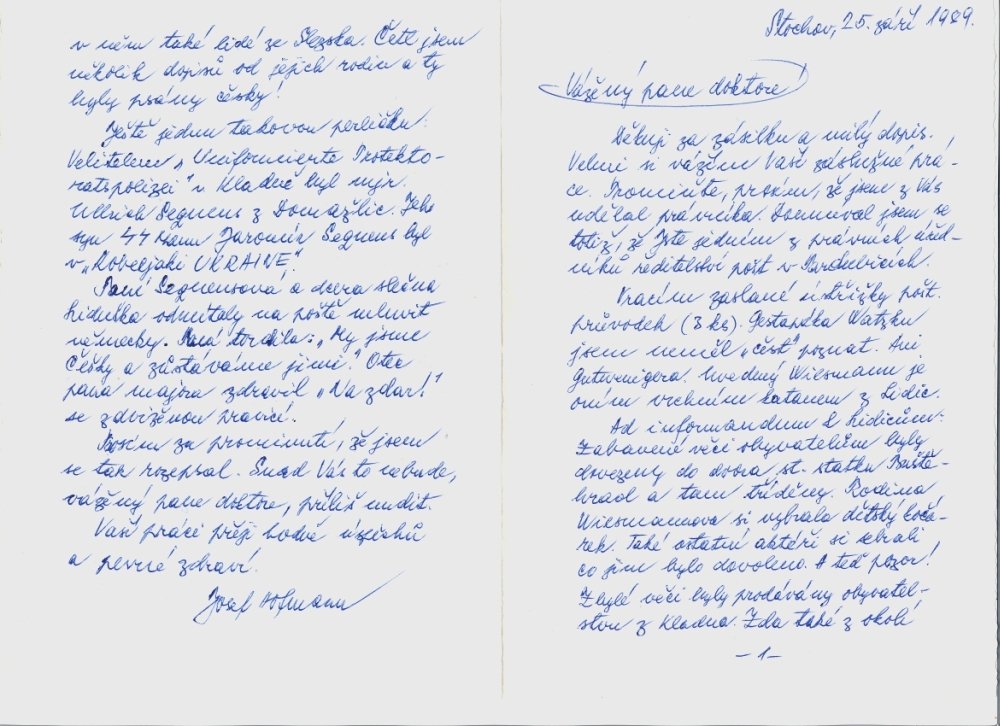 Stochov, 25. září 1989.
Vážený pane doktore!
Děkuji za zásilku a milý dopis.
Velmi si vážím Vaší záslužné prá-
ce. Promiňte, prosím, že jsem z Vás
udělal právníka. Domníval jsem se
totiž, že jste jedním z právních úřed-
níků ředitelství pošt v Pardubicích.
Vracím zaslané ústřižky pošt.
průvodek (3 ks). Gestapáka Watzku
jsem neměl „čest" poznat. Ani
Gutwenigera. Uvedený Wiesmann je
oním vrchním katanem z Lidic.
Ad informandum k Lidicům:
Zabavené věci obyvatelům byly
dovezeny do dvora st. statku Buště-
hrad a tam tříděny. Rodina
Wiesmannova si vybrala dětský kočá-
rek. Také ostatní aktéři si sebrali
co jim bylo dovoleno. A teď pozor!
Zbylé věci byly prodávány obyvatel-
stvu z Kladna. Zda také z okolí
-1-
v něm také lidé ze Slezska. Četl jsem
několik dopisů od jejich rodin a ty
byly psány česky!
Ještě jednu takovou perličku:
Velitelem „Uniformierte Protekto-
ratspolizei" v Kladně byl mjr.
Ullrich Segnens z Domažlic. Jeho
syn Jaromír Segnens byl
v „ UKRAINE".
Paní Segnensová a dcera slečna
Liduška odmítaly na poště mluvit
německy. Paní tvrdila: „My jsme
Češky a zůstáváme jimi!" Otec
pana majora zdravil „Na zdar!"
se zdviženou pravicí.
Prosím za prominutí, že jsem
se tak rozepsal. Snad Vás to nebude,
vážený pane doktore, příliš nudit.
Vaší práci přeji hodně úspěchů
a pevné zdraví.
Josef Hofmann